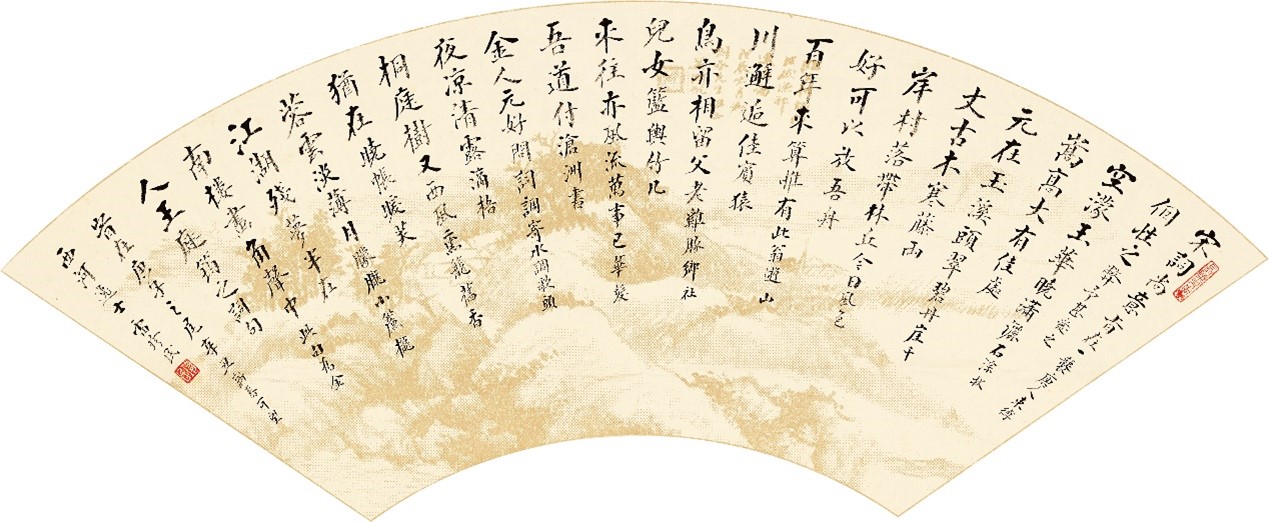 宋詞尚意
空濛玉華曉瀟灑石淙秋
嵩高大有佳處
元在玉溪頭翠碧丹崖千
丈古木寒藤兩
岸村落帶林丘今日風色
好可以放吾舟
百年來算惟有此翁遊山
川邂逅佳賓猿
鳥亦相留父老雞豚鄉社
兒女籃輿竹几
來往亦風流萬事已華髮
吾道付滄洲書
金人元好問詞調寄水調歌頭
夜凉清露滴梧
桐庭樹又西風熏籠舊香
猶在曉帳暖芙
蓉雲淡薄月朦朧小簾櫳
江湖殘夢半在
南樓畫角聲中此句為金
人王庭筠之詞句
時在庚子之尾辛丑新春可望
西河逸士